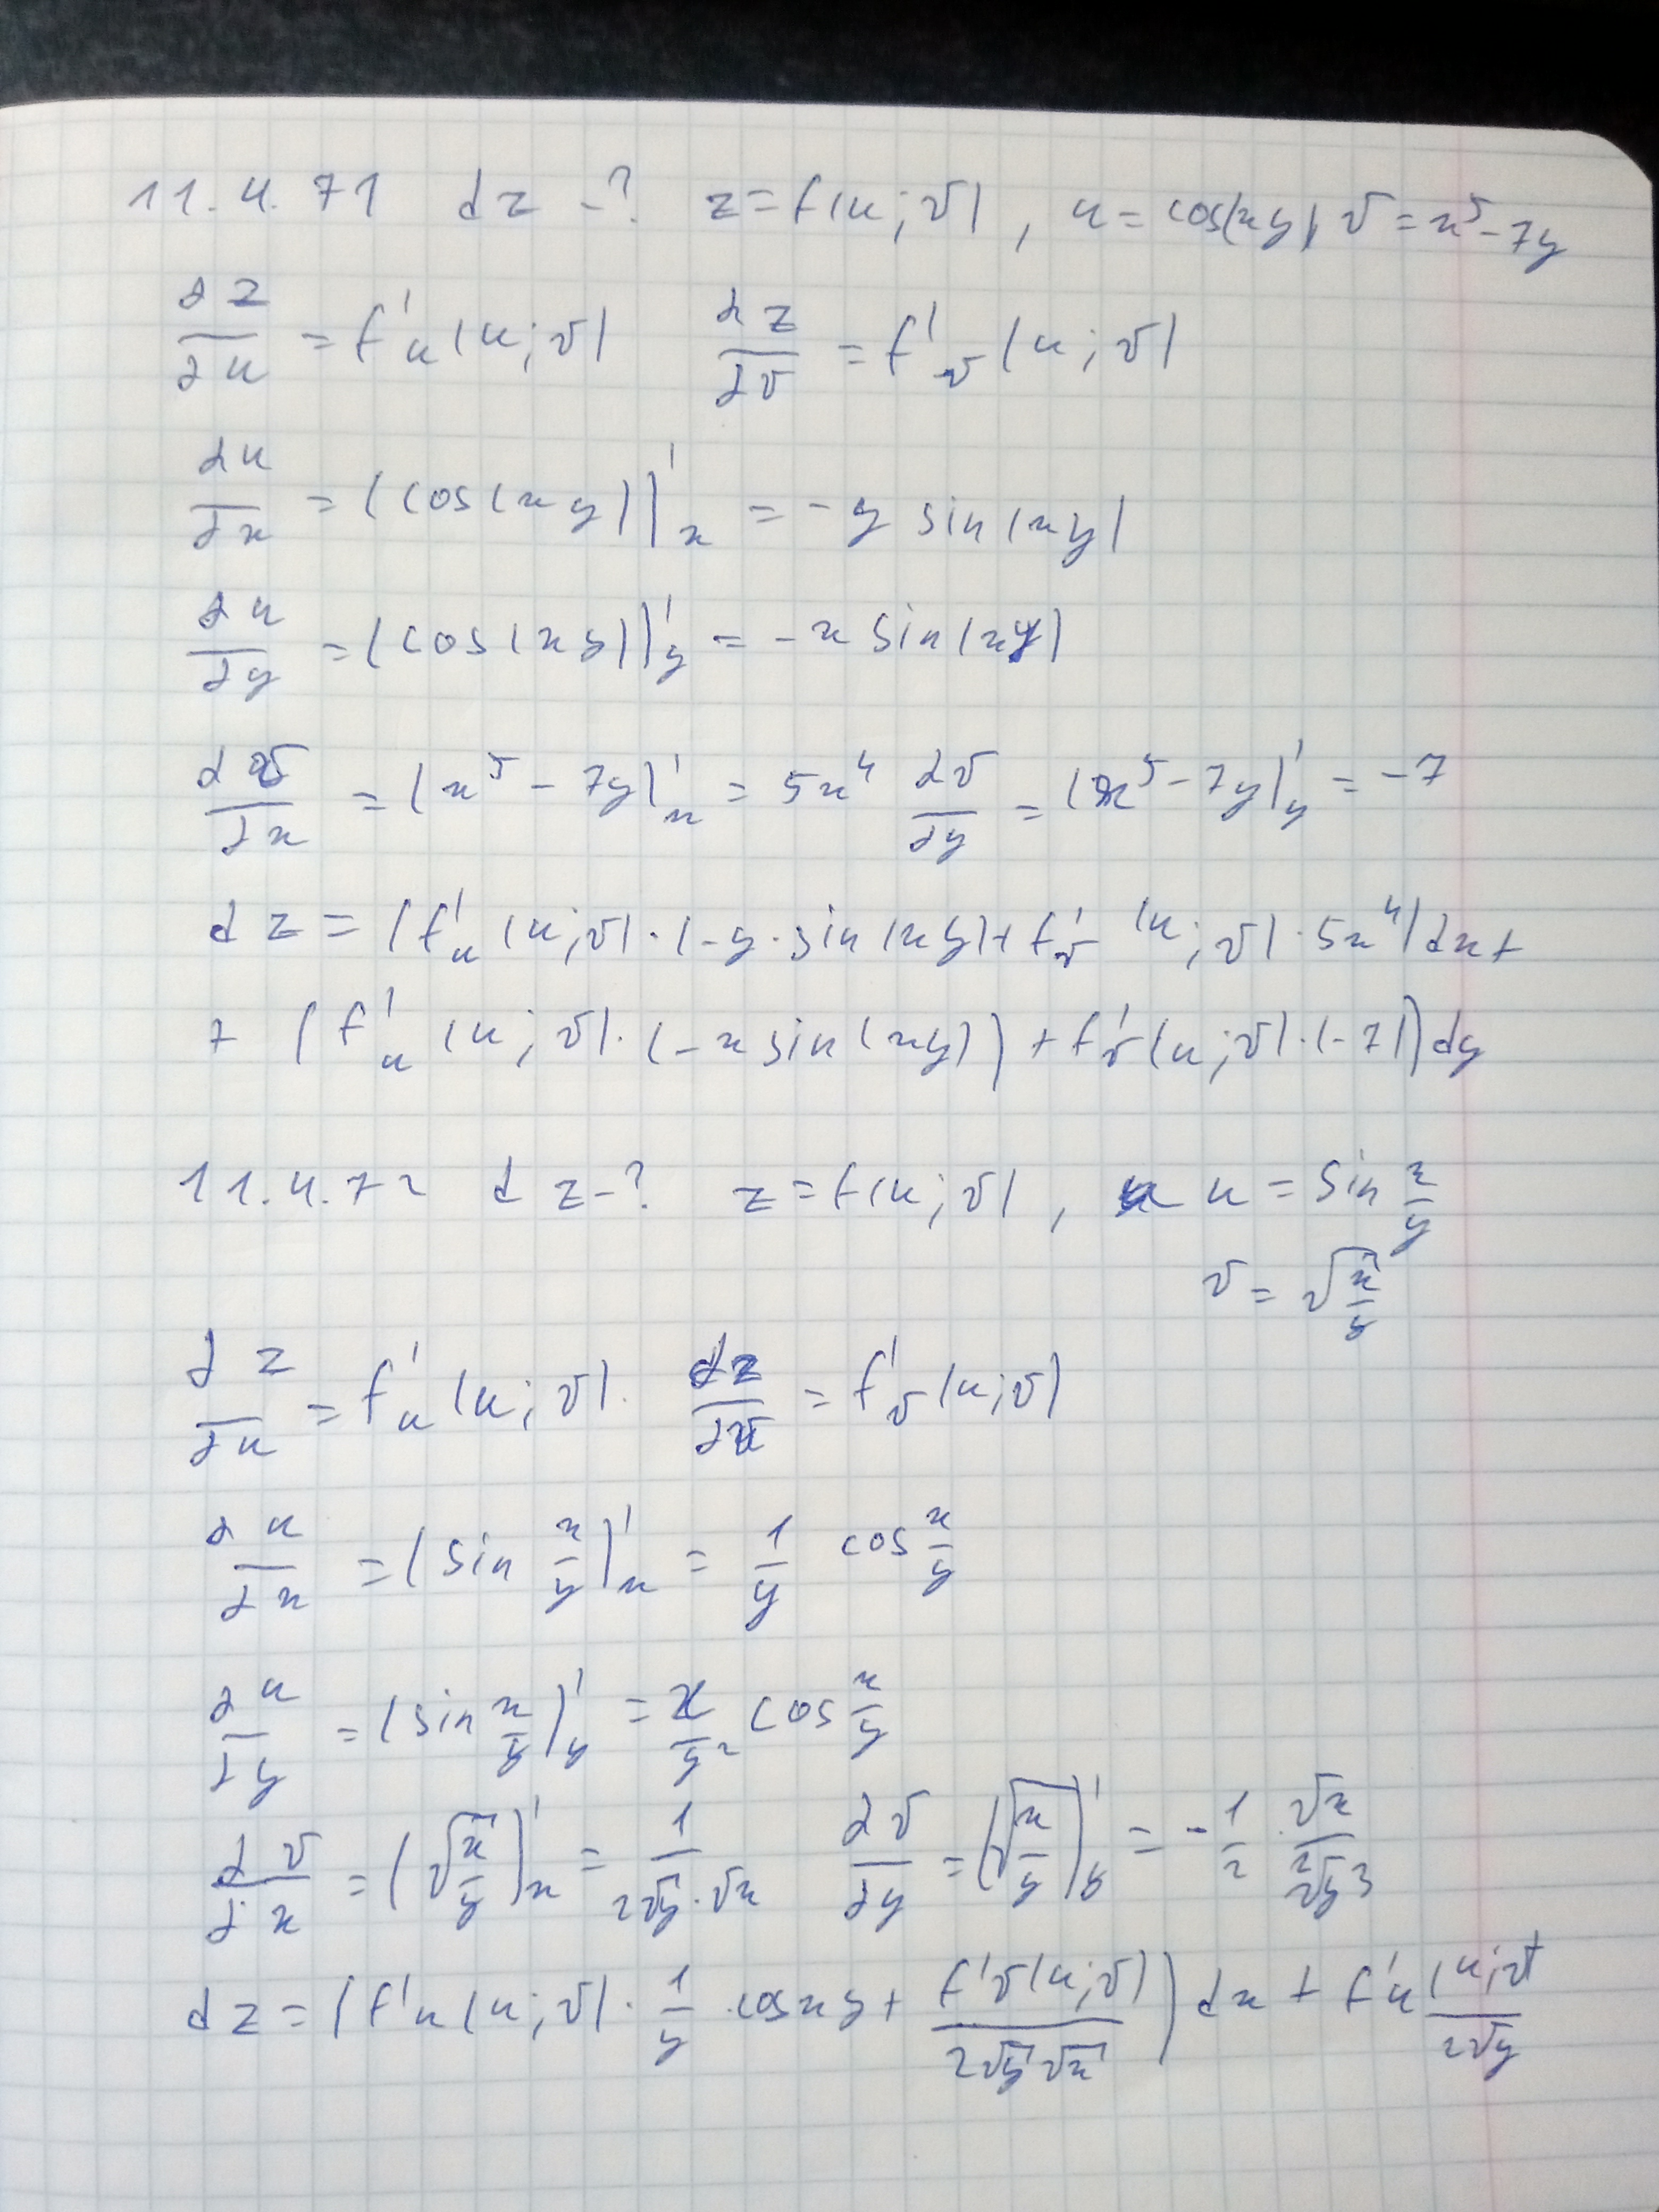 11.4.71 dz -? z = f(u; v), u = cos(xy), v = x⁵ - 7y
∂z/∂u = f'ᵤ(u; v) ∂z/∂v = f'ᵥ(u; v)
∂u/∂x = (cos(xy))'ₓ = - y sin(xy)
∂u/∂y = (cos(xy))'_y = - x sin(xy)
∂v/∂x = (x⁵ - 7y)'ₓ = 5x⁴ ∂v/∂y = (x⁵ - 7y)'_y = -7
dz = (f'ᵤ(u; v) · (-y · sin(xy)) + f'ᵥ(u; v) · 5x⁴)dx +
+ (f'ᵤ(u; v) · (-x sin(xy)) + f'ᵥ(u; v) · (-7))dy
11.4.72 dz -? z = f(u; v), u = sin x/y
v = √(x/y)
∂z/∂u = f'ᵤ(u; v). ∂z/∂v = f'ᵥ(u; v)
∂u/∂x = (sin x/y)'ₓ = 1/y cos x/y
∂u/∂y = (sin x/y)'_y = x/y² cos x/y
∂v/∂x = (√(x/y))'ₓ = 1/(2√y · √x) ∂v/∂y = (√(x/y))'_y = - 1/2 · √x/
dz = (f'ᵤ(u; v) · 1/y · cos xy + f'ᵥ(u; v)/(2√y √x)) dx + f'ᵤ(u; v)/(2√y)